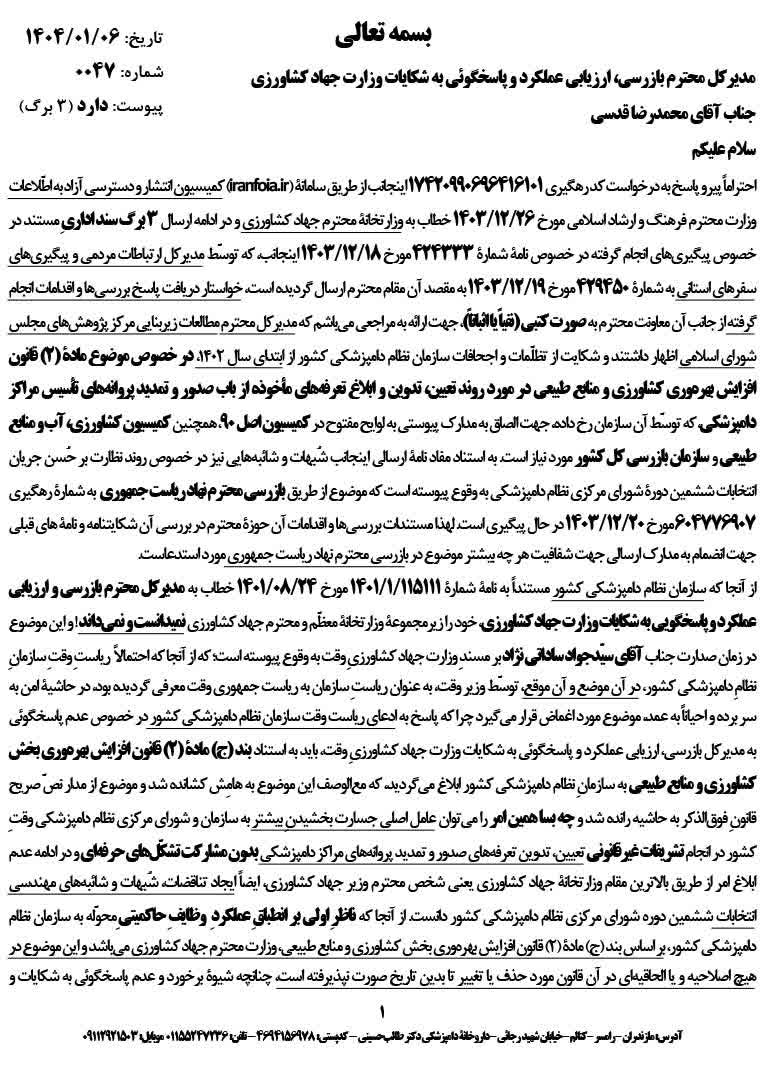 بسمه تعالی
تاریخ: ۱۴۰۴/۰۱/۰۶
شماره: ۰۰۴۷
پیوست: دارد (۳ برگ)
مدیر کل محترم بازرسی، ارزیابی عملکرد و پاسخگوئی به شکایات وزارت جهاد کشاورزی
جناب آقای محمدرضا قدسی
سلام علیکم
احتراماً پیرو پاسخ به درخواست کد رهگیری ۱۷۴۲۰۹۹۰۶۹۶۴۱۶۱۰۱ اینجانب از طریق سامانهٔ (iranfoia.ir) کمیسیون انتشار و دسترسی آزاد به اطّلاعات
وزارت محترم فرهنگ و ارشاد اسلامی مورخ ۱۴۰۳/۱۲/۲۶ خطاب به وزارتخانهٔ محترم جهاد کشاورزی و در ادامه ارسال ۳ برگ سند اداریِ مستند در
خصوص پیگیری‌های انجام گرفته در خصوص نامهٔ شمارهٔ ۴۲۴۳۳۳ مورخ ۱۴۰۳/۱۲/۱۸ اینجانب، که توسّط مدیر کل ارتباطات مردمی و پیگیری‌های
سفرهای استانی به شمارهٔ ۴۲۹۴۵۰ مورخ ۱۴۰۳/۱۲/۱۹ به مقصد آن مقام محترم ارسال گردیده است، خواستار دریافت پاسخ بررسی‌ها و اقدامات انجام
گرفته از جانب آن معاونت محترم به صورت کتبی (نفیاً یا اثباتاً)، جهت ارائه به مراجعی می‌باشم که مدیر کل محترم مطالعات زیربنایی مرکز پژوهش‌های مجلس
شورای اسلامی اظهار داشتند و شکایت از تظلّمات و اجحافات سازمان نظام دامپزشکی کشور از ابتدای سال ۱۴۰۲، در خصوص موضوع مادهٔ (۲) قانون
افزایش بهره‌وری کشاورزی و منابع طبیعی در مورد روند تعیین، تدوین و ابلاغ تعرفه‌های مأخوذه از باب صدور و تمدید پروانه‌های تأسیس مراکز
دامپزشکی، که توسّط آن سازمان رخ داده، جهت الصاق به مدارک پیوستی به لوایح مفتوح در کمیسیون اصل ۹۰، همچنین کمیسیون کشاورزی، آب و منابع
طبیعی و سازمان بازرسی کل کشور مورد نیاز است. به استناد مفاد نامهٔ ارسالی اینجانب شُبهات و شائبه‌هایی نیز در خصوص روند نظارت بر حُسن جریان
انتخابات ششمین دورهٔ شورای مرکزی نظام دامپزشکی به وقوع پیوسته است که موضوع از طریق بازرسی محترم نهاد ریاست جمهوری به شمارهٔ رهگیری
۶۰۴۷۷۶۹۰۷ مورخ ۱۴۰۳/۱۲/۲۰ در حال پیگیری است. لهذا مستندات بررسی‌ها و اقدامات آن حوزهٔ محترم در بررسی آن شکایتنامه و نامه های قبلی
جهت انضمام به مدارک ارسالی جهت شفافیت هر چه بیشتر موضوع در بازرسی محترم نهاد ریاست جمهوری مورد استدعاست.
از آنجا که سازمان نظام دامپزشکی کشور مستنداً به نامهٔ شمارهٔ ۱۴۰۱/۱/۱۱۵۱۱۱ مورخ ۱۴۰۱/۰۸/۲۴ خطاب به مدیر کل محترم بازرسی و ارزیابی
عملکرد و پاسخگویی به شکایات وزارت جهاد کشاورزی، خود را زیر مجموعهٔ وزارتخانهٔ معظّم و محترم جهاد کشاورزی نمیدانست و نمی‌داند! و این موضوع
در زمان صدارت جناب آقای سیّدجواد ساداتی نژاد بر مسندِ وزارت جهاد کشاورزیِ وقت به وقوع پیوسته است؛ که از آنجا که احتمالاً ریاستِ وقتِ سازمانِ
نظامِ دامپزشکی کشور، در آن موضع و آن موقع، توسّط وزیر وقت، به عنوان ریاستِ سازمان به ریاست جمهوری وقت معرفی گردیده بود، در حاشیهٔ امن به
سر برده و احیاناً به عمد، موضوع مورد اغماض قرار می‌گیرد چرا که پاسخ به ادعای ریاست وقت سازمان نظام دامپزشکی کشور در خصوص عدم پاسخگوئی
به مدیر کل بازرسی، ارزیابی عملکرد و پاسخگوئی به شکایات وزارت جهاد کشاورزیِ وقت، باید به استناد بند (ج) مادهٔ (۲) قانون افزایش بهره‌وری بخش
کشاورزی و منابع طبیعی به سازمانِ نظام دامپزشکی کشور ابلاغ می‌گردید، که مع‌الوصف این موضوع به هامِش کشانده شد و موضوع از مدار نصّ صریح
قانونِ فوق‌الذکر به حاشیه رانده شد و چه بسا همین امر را می‌توان عاملِ اصلی جسارت بخشیدنِ بیشتر به سازمان و شورای مرکزی نظام دامپزشکی وقتِ
کشور در انجام تشریفات غیر قانونی تعیین، تدوین تعرفه‌های صدور و تمدید پروانه‌های مراکز دامپزشکی بدون مشارکت تشکّل‌های حرفه‌ای و در ادامه عدم
ابلاغ امر از طریق بالاترین مقام وزارتخانهٔ جهاد کشاورزی یعنی شخص محترم وزیر جهاد کشاورزی، ایضاً ایجاد تناقضات، شُبهات و شائبه‌های مهندسی
انتخابات ششمین دوره شورای مرکزی نظام دامپزشکی کشور دانست. از آنجا که ناظر اولی بر انطباقِ عملکرد وظایفِ حاکمیتیِ محوّله به سازمان نظام
دامپزشکی کشور، بر اساس بند (ج) مادهٔ (۲) قانون افزایش بهره‌وری بخش کشاورزی و منابع طبیعی، وزارت محترم جهاد کشاورزی می‌باشد و این موضوع در
هیچ اصلاحیه و یا الحاقیه‌ای در آن قانون مورد حذف یا تغییر تا بدین تاریخ صورت نپذیرفته است، چنانچه شیوهٔ برخورد و عدم پاسخگوئی به شکایات و
۱
آدرس: مازندران – رامسر – کتالم – خیابان شهید رجائی – داروخانهٔ دامپزشکی دکتر طالب حسینی – کدپستی: ۴۶۹۴۱۵۶۹۷۸ – تلفن: ۰۱۱۵۵۲۴۷۲۳۶ موبایل: ۰۹۱۱۲۹۲۱۵۰۳